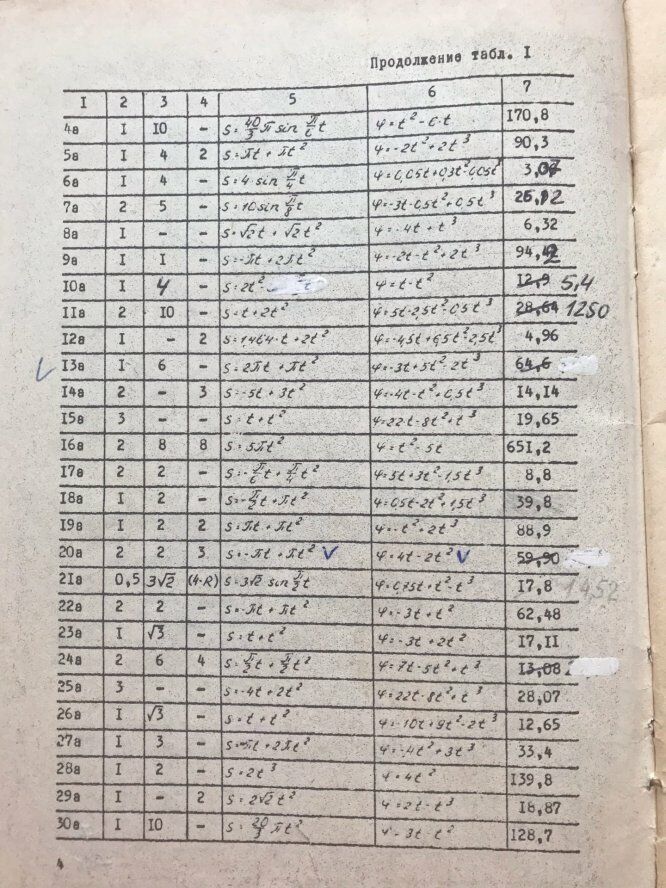 Продолжение табл. I
I 2 3 4 5 6 7
4а I 10 - S=40/3 π sin π/6 t φ=t²-6·t 170,8
5а I 4 2 S=πt+πt² φ=-2t²+2t³ 90,3
6а I 4 - S=4·sin π/4 t φ=0,05t+0,3t²-0,05t³ 3,07
7а 2 5 - S=10sin π/8 t φ=-3t-0,5t²+0,5t³ 26,12
8а I - - S=√2t+√2t² φ=-4t+t³ 6,32
9а I I - S=-πt+2πt² φ=-2t-t²+2t³ 94,42
10а I 4 - S=2t² φ=t-t² 12,9 5,4
11а 2 10 - S=t+2t² φ=5t-2,5t²-0,5t³ 28,64 1250
12а I - 2 S=1,464·t+2t² φ=-4,5t+6,5t²-2,5t³ 4,96
13а I 6 - S=2πt+πt² φ=-3t+5t²-2t³ 64,6
14а 2 - 3 S=-5t+3t² φ=-4t-t²+0,5t³ 14,14
15а 3 - - S=t+t² φ=22t-8t²+t³ 19,65
16а 2 8 8 S=5πt² φ=t²-5t 651,2
17а 2 2 - S=-π/6 t+π/4 t² φ=3t+3t²-1,5t³ 8,8
18а I 2 - S=-π/2 t+πt² φ=0,5t-2t²+1,5t³ 39,8
19а I 2 2 S=πt+πt² φ=-t²+2t³ 88,9
20а 2 2 3 S=-πt+πt² φ=4t-2t² 59,90
21а 0,5 3√2 (4-R) S=3√2 sin π/3 t φ=0,75t+t²-t³ 17,8
22а 2 2 - S=-πt+πt² φ=-3t+t² 62,48
23а I √3 - S=t+t² φ=-3t+2t² 17,11
24а 2 6 4 S=π/2 t+π/2 t² φ=7t-5t²+t³ 13,08
25а 3 - - S=-4t+2t² φ=22t-8t²+t³ 28,07
26а I √3 - S=t+t² φ=-10t+9t²-2t³ 12,65
27а I 3 - S=-πt+2πt² φ=-4t²+3t³ 33,4
28а I 2 - S=2t³ φ=4t² 139,8
29а I - 2 S=2√2t² φ=2t-t³ 18,87
30а I 10 - S=20/3 πt² φ=3t-t² 128,7
4